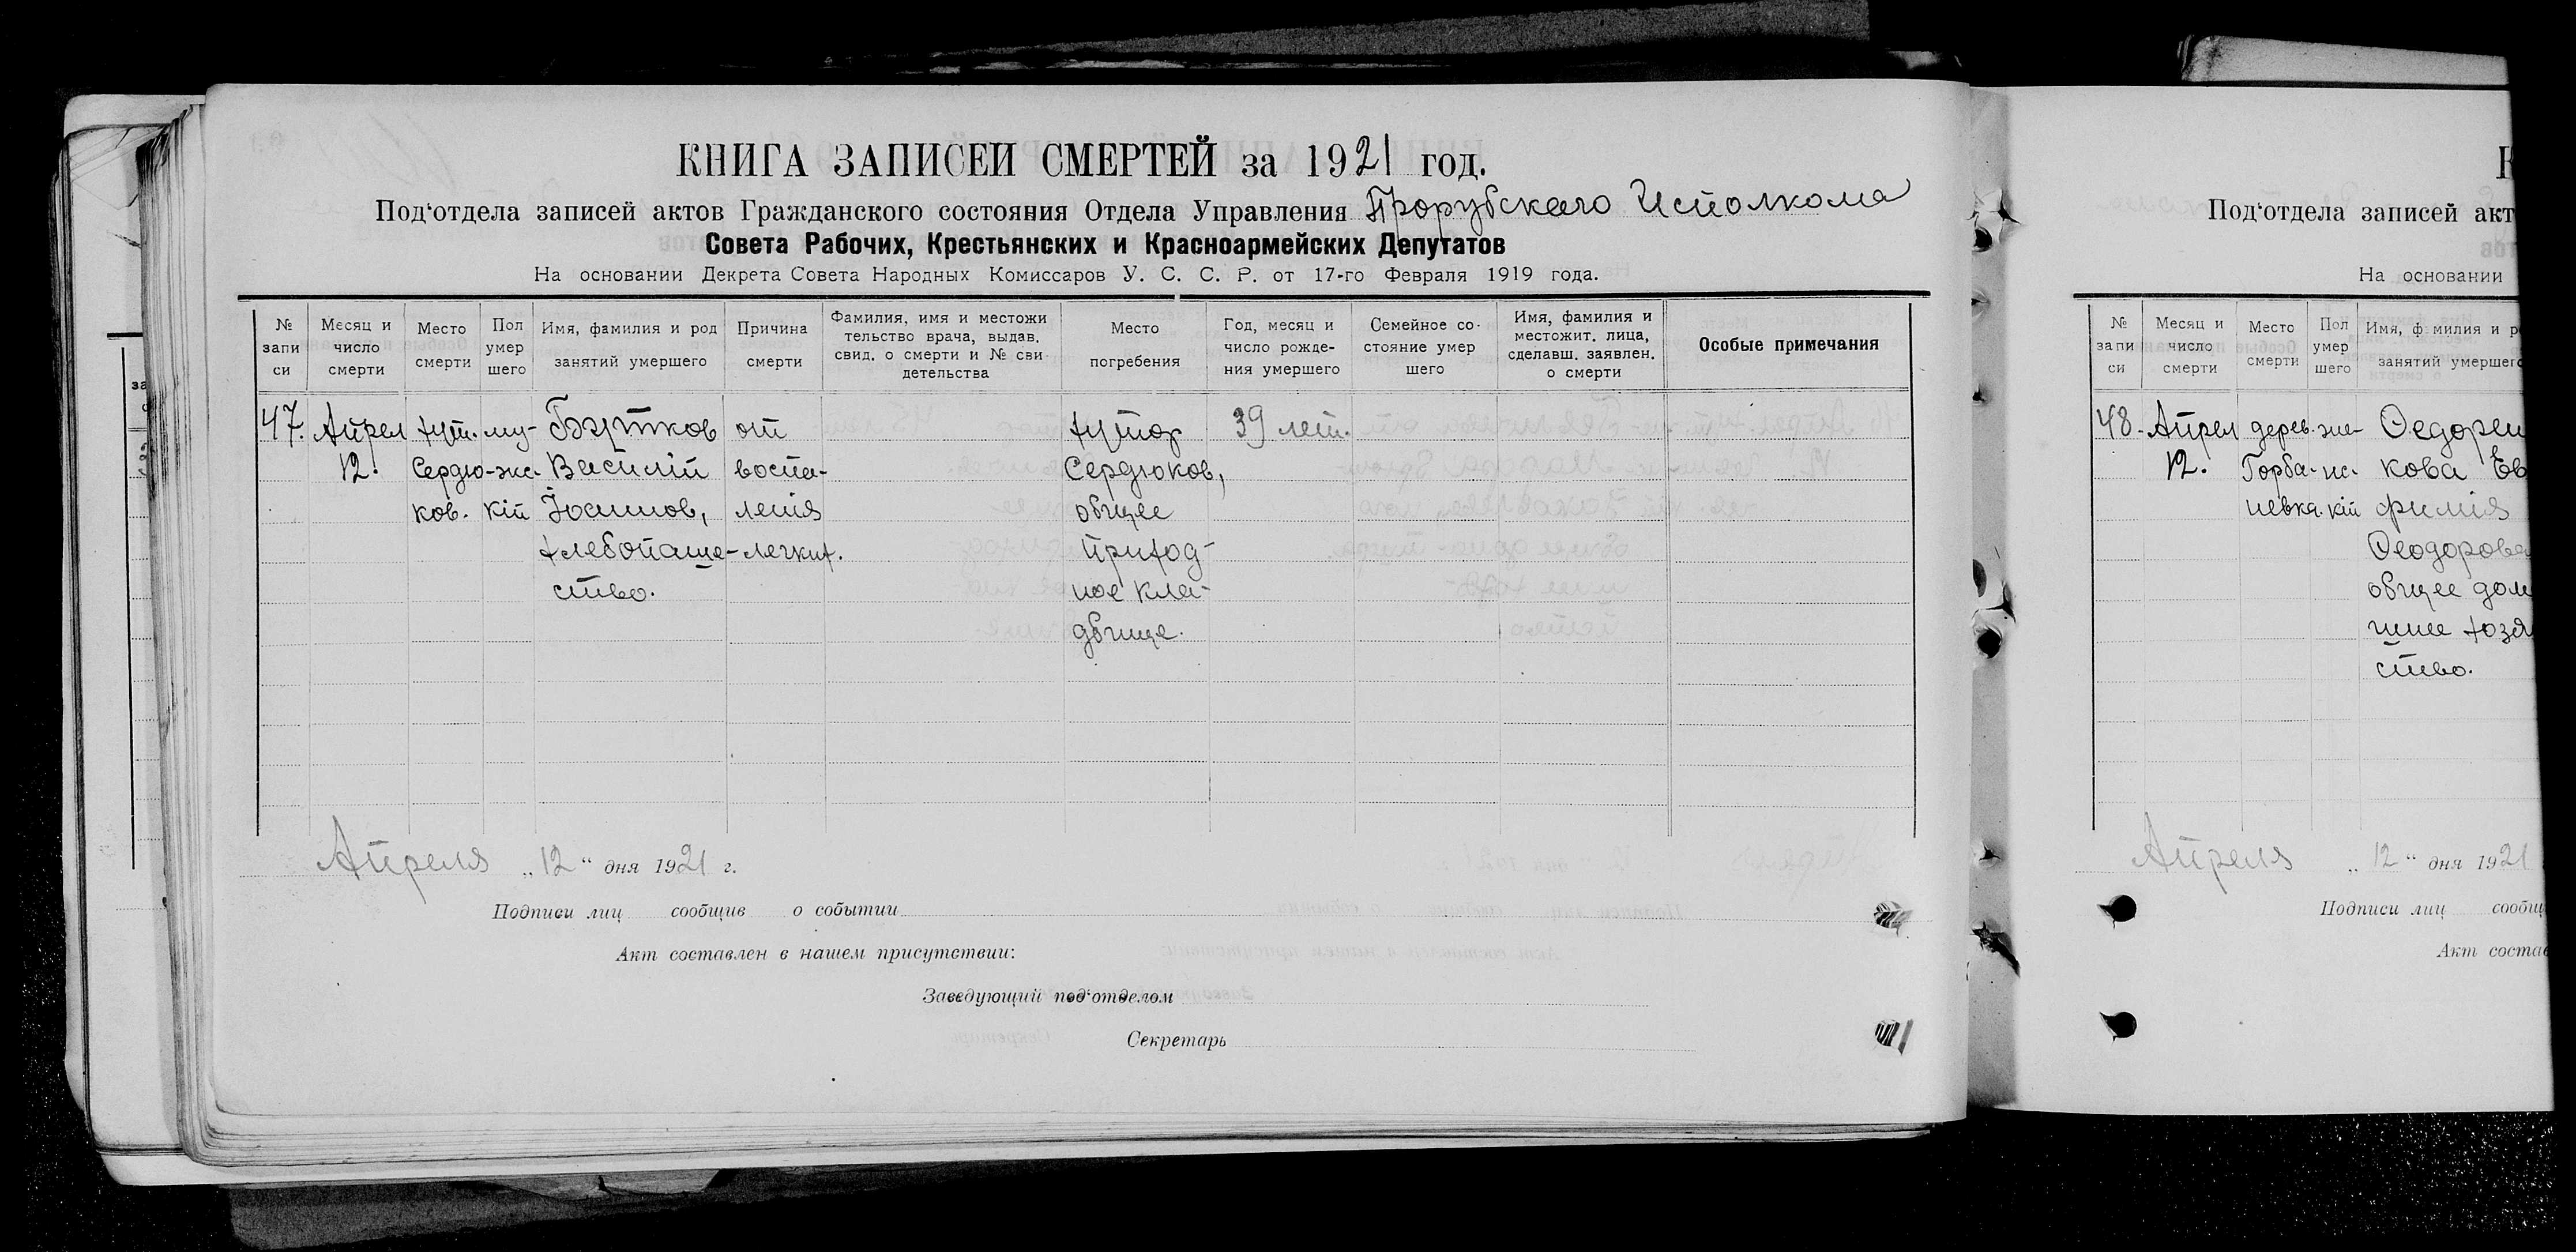 КНИГА ЗАПИСЕЙ СМЕРТЕЙ за 1921 год.
Под‘отдела записей актов Гражданского состояния Отдела Управления Прорубскаго Исполкома
Совета Рабочих, Крестьянских и Красноармейских Депутатов
На основании Декрета Совета Народных Комиссаров У. С. С. Р. от 17-го Февраля 1919 года.
№ запи си
Месяц и число смерти
Место смерти
Пол умер шего
Имя, фамилия и род занятий умершего
Причина смерти
Фамилия, имя и местожи тельство врача, выдав. свид. о смерти и № сви детельства
Место погребения
Год, месяц и число рожде- ния умершего
Семейное со- стояние умер шего
Имя, фамилия и местожит. лица, сделавш. заявлен. о смерти
Особые примечания
47. Апрел хут. му- Бутков от хутор 39 лет.
12. Сердю- жс- Василій воспа- Сердюков,
ков. кій Іоаннов, ленія общее
хлебопаше- легких. приход-
ство. ное кла-
дбище.
Апреля „12“ дня 1921 г.
Подписи лиц сообщив о событии
Акт составлен в нашем присутствии:
Заведующий под‘отделом
Секретарь
К
Под‘отдела записей акт
На основании
№ запи си
Месяц и число смерти
Место смерти
Пол умер шего
Имя, ф милия и р
занятий умершего
48. Апрел дерев. же- Феодорен
12. Горба- нс- кова Ев
невка. кій фимія
Феодорова
общее дом
шнее хозя
ство.
Апреля „12“ дня 1921
Подписи лиц сообщ
Акт состав